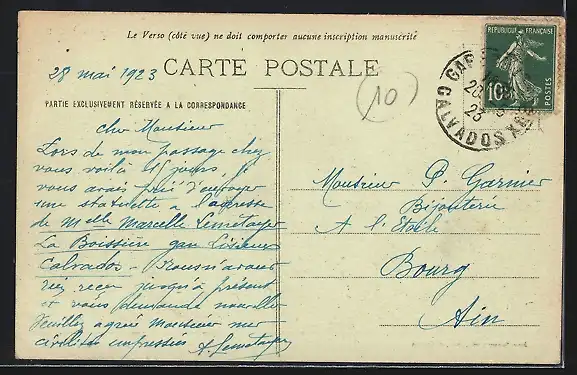 Le Verso (côté vue) ne doit comporter aucune inscription manuscrite
28 mai 1923
CARTE POSTALE
(10)
PARTIE EXCLUSIVEMENT RÉSERVÉE A LA CORRESPONDANCE
Cher Monsieur
Lors de mon passage chez
vous voilà 15 jours je
vous avais prié d'envoyer
une statuette a l'adresse
de Melle Marcelle Lemetayer
La Boissière par Lisieux
Calvados - Nous n'avons
rien reçu jusqu'à présent
et vous demande nouvelle
Veuillez agréer Monsieur mes
civilités empressées A. Lemetayer
Monsieur P. Garnier
Bijouterie
A l'Etoile
Bourg
Ain
REPUBLIQUE FRANÇAISE
10c
POSTES
GARE
23
CALVADOS